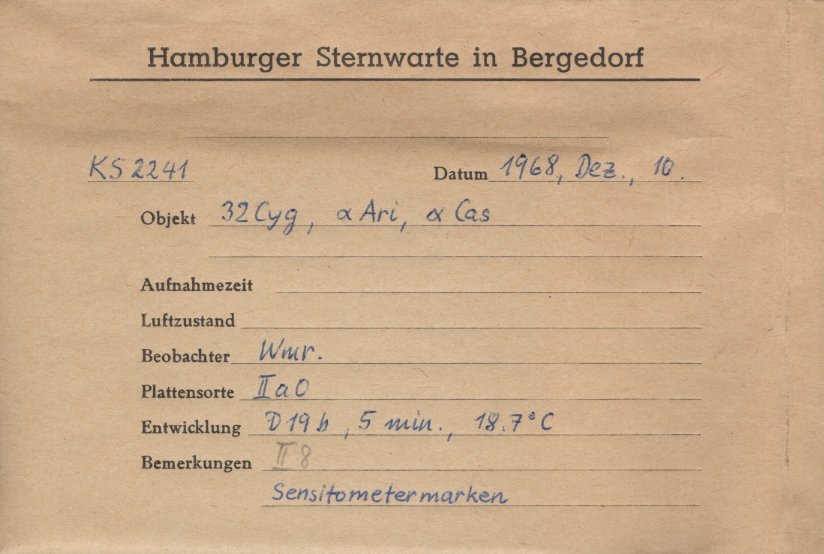 Hamburger Sternwarte in Bergedorf
KS 2241 Datum 1968, Dez., 10.
Objekt 32 Cyg, α Ari, α Cas
Aufnahmezeit
Luftzustand
Beobachter Wmr.
Plattensorte IIaO
Entwicklung D19b, 5 min., 18.7°C
Bemerkungen II 8
Sensitometermarken